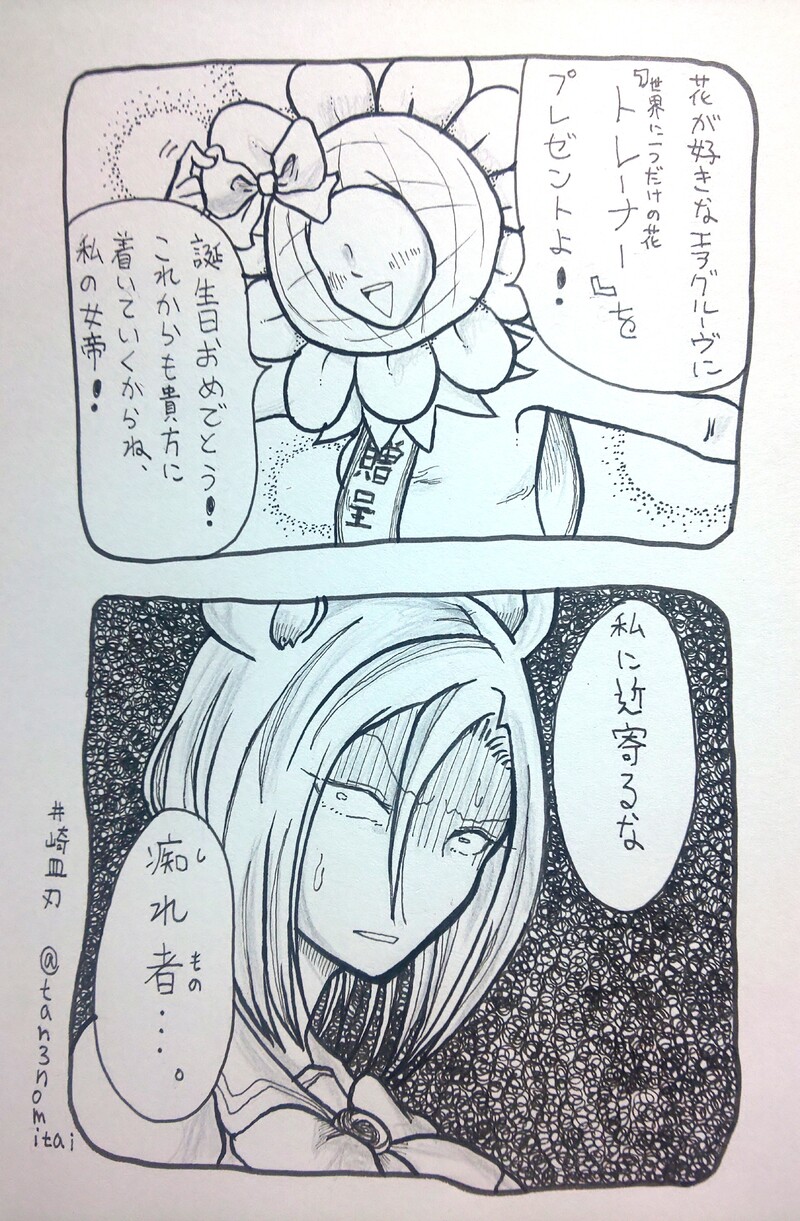 花が好きなエアグルーヴに
『トレーナー』を
世界に一つだけの花
プレゼントよ!
誕生日おめでとう!
これからも貴方に
着いていくからね、
私の女帝!
贈呈
私に近寄るな
痴れ者…。
し
もの
井崎皿刃 @tan3nomitai